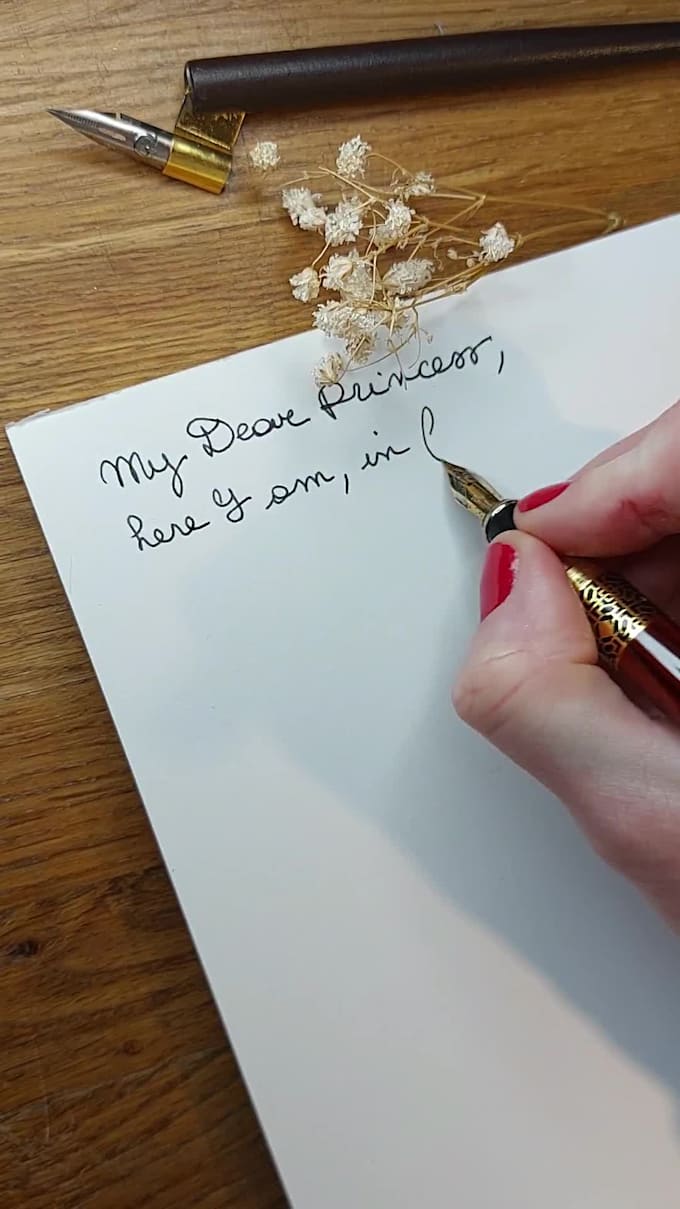 My Dear Princess,
here I am, in